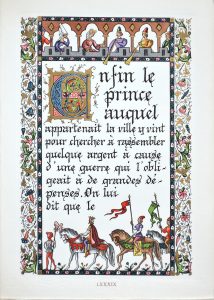 Enfin le
prince
auquel
appartenait la ville y vint
pour chercher à rassembler
quelque argent à cause
d'une guerre qui l'obli-
geait à de grandes dé-
penses. On lui
dit que le
LXXXIX